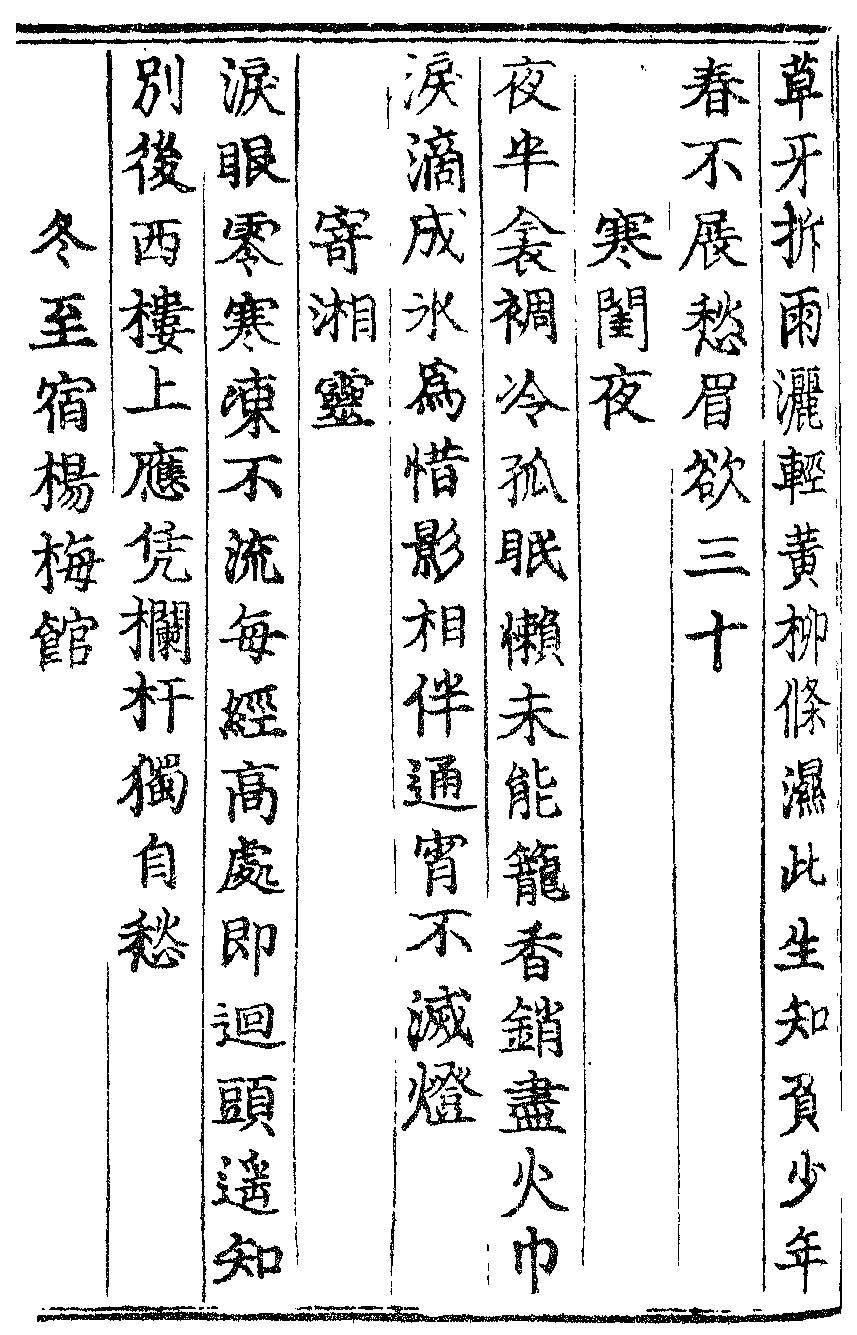 草牙拆雨灑輕黃柳條濕此生知負少年
春不展愁眉欲三十
寒閨夜
夜半衾裯冷孤眠懶未能籠香銷盡火巾
淚滴成氷為惜影相伴通宵不滅燈
寄湘靈
淚眼零寒凍不流每經高處即迴頭遥知
別後西樓上應凭欄杆獨自愁
冬至宿楊梅館